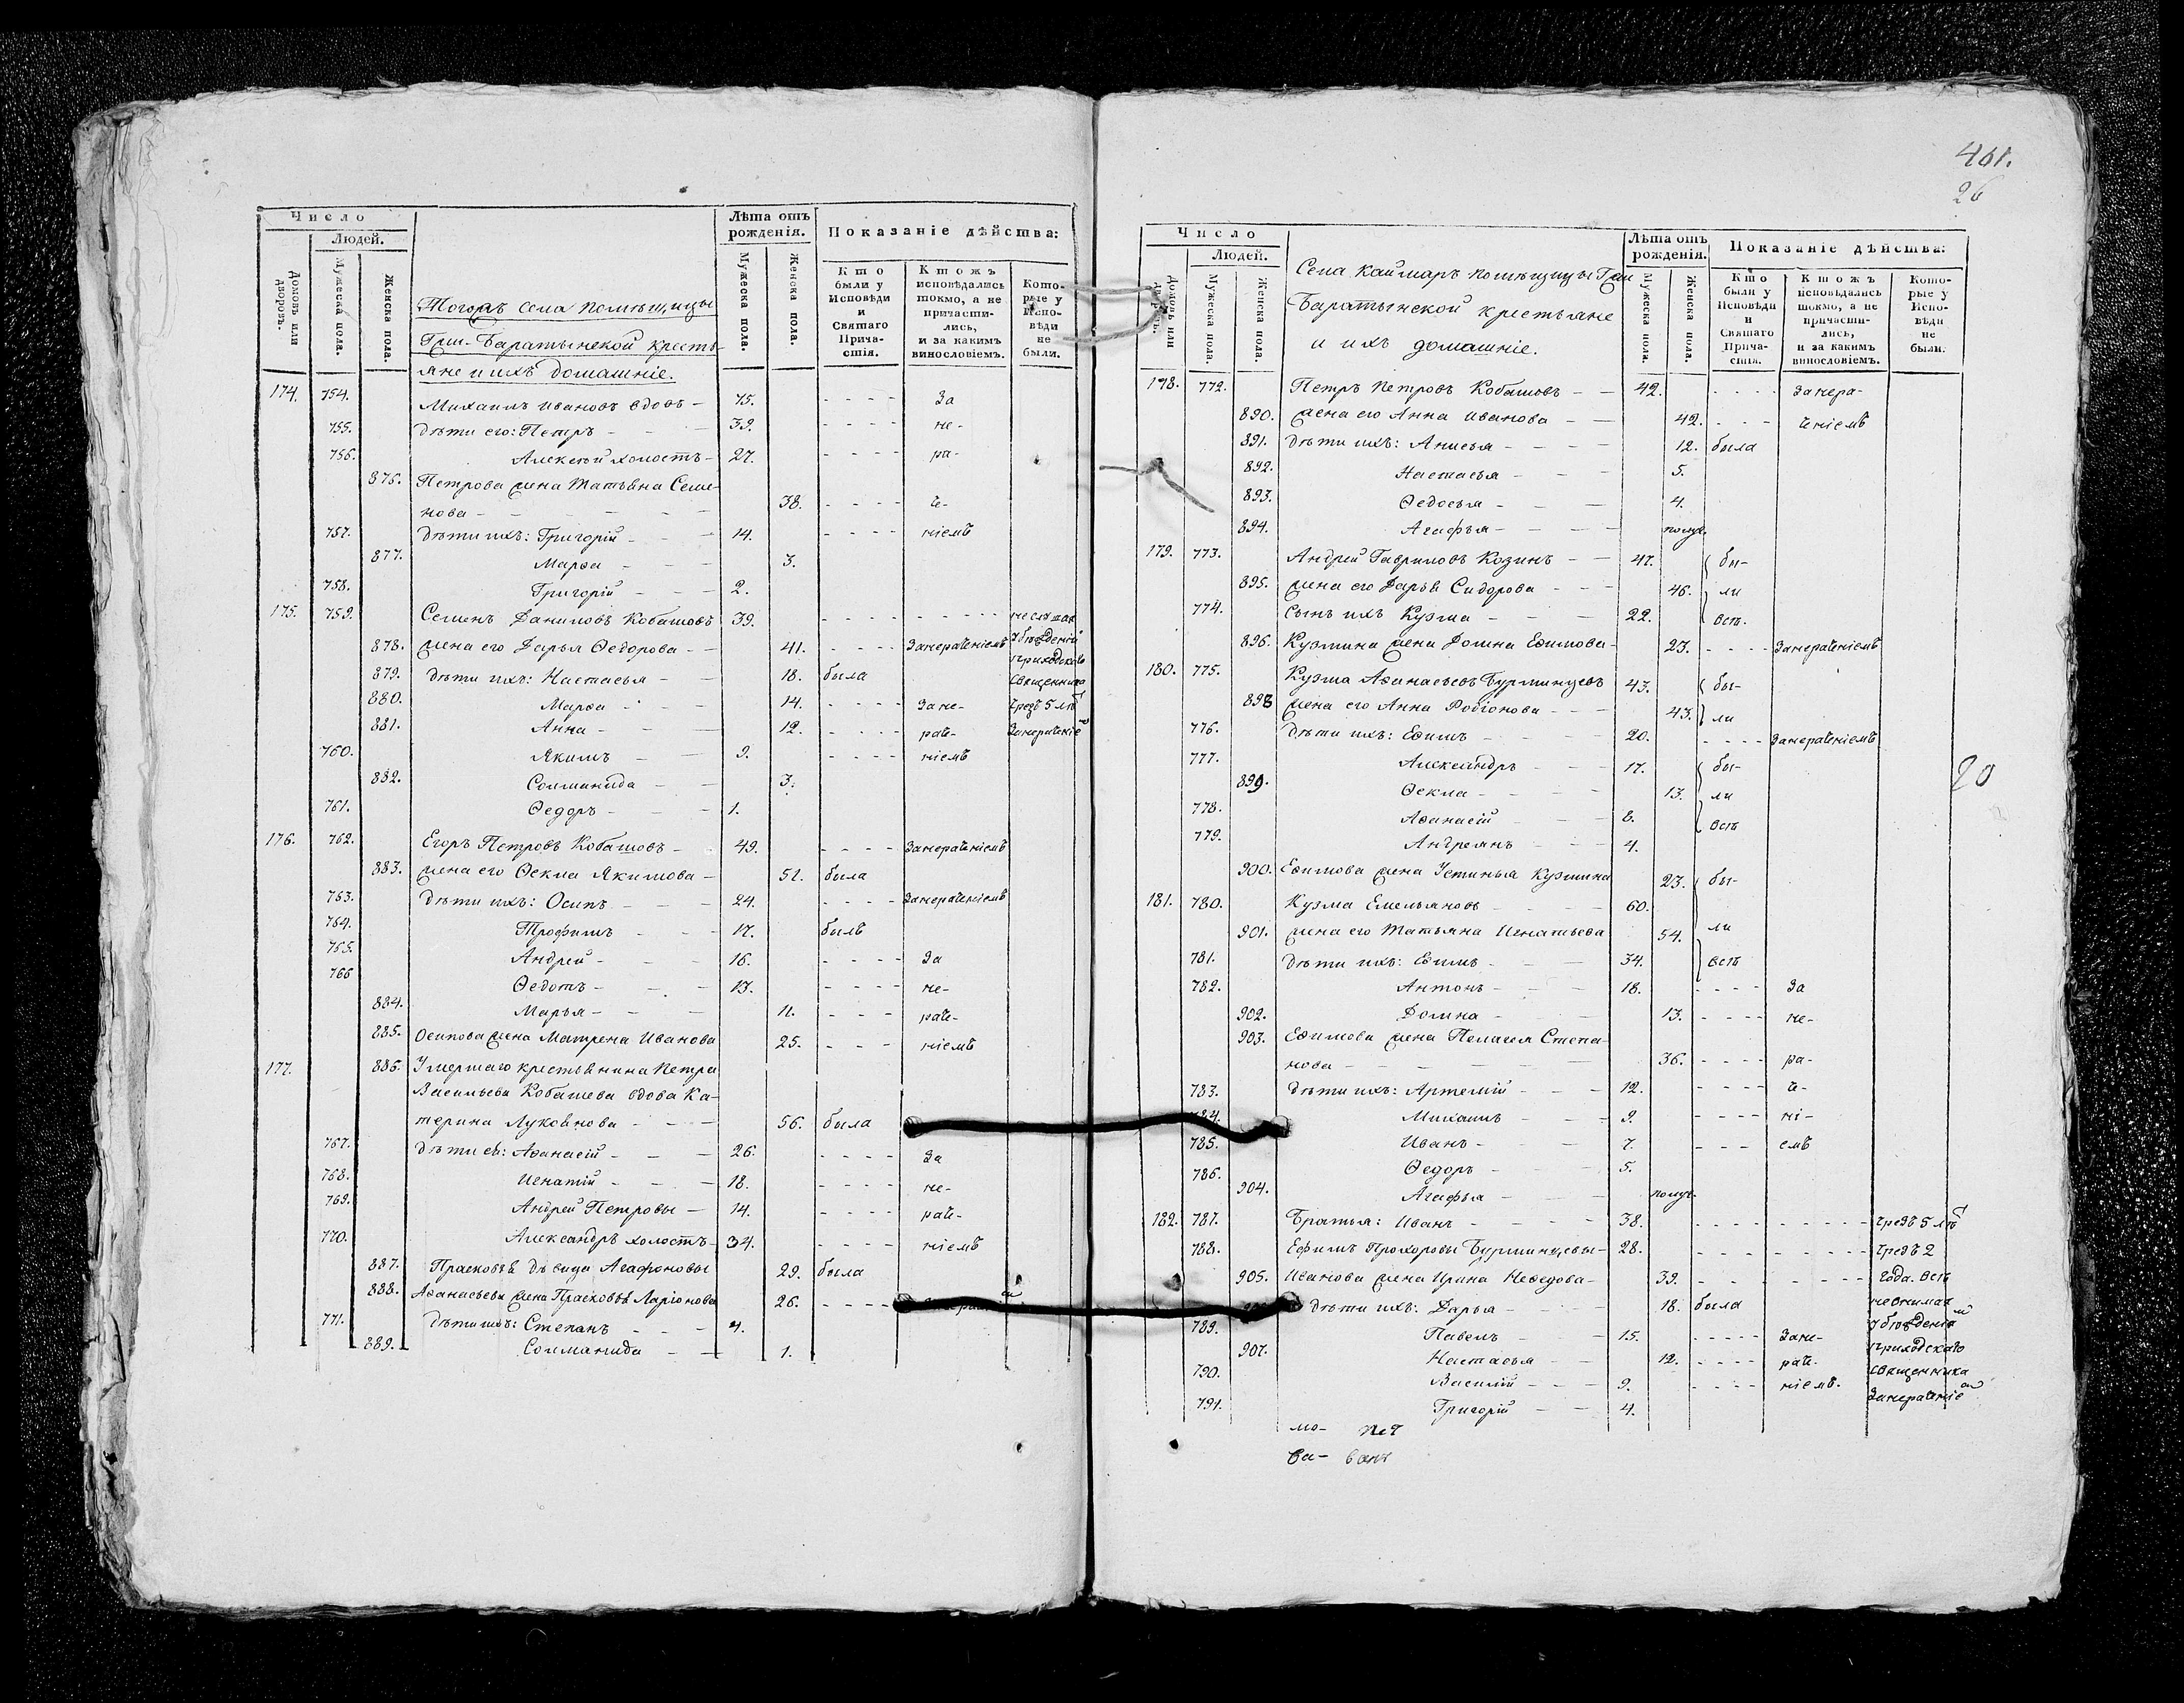 461.
26
Число
Людей.
Домовъ или дворовъ.
Мужеска пола.
Женска пола.
Лѣта отъ рожденія.
Мужеска пола.
Женска пола.
Показаніе дѣйства:
Кто были у Исповѣди и Святаго Причастія.
Ктожъ исповѣдались токмо, а не причастились, и за какимъ винословіемъ.
Которые у Исповѣди не были.
Тогожъ села помѣщицы
Гри-Баратынской кресть-
яне и ихъ домашніе.
174. 754. Михаилъ Ивановъ вдовъ - 75. За
755. дѣти его: Петръ - 39. не-
756. Алексѣй холостъ - 27. ра-
876. Петрова жена Татьяна Семе-
нова - 38. че-
757. дѣти ихъ: Григорій - 14. ніемъ
877. Марѳа - 3.
758. Григорій - 2.
175. 759. Семенъ Даниловъ Кобашовъ 39.
878. жена его Дарья Ѳедорова - 41. Занераченіемъ убѣжденій
879. дѣти ихъ: Настасья - 18. была священника
880. Марѳа - 14. Зане- чрезъ 5 лѣтъ
881. Анна - 12. раче- Занераченіем
760. Якимъ - 9. ніемъ
882. Соломанида - 3.
761. Ѳедоръ - 1.
176. 762. Егоръ Петровъ Кобашовъ - 49. Занераченіемъ
883. жена его Ѳекла Якимова - 51. была
763. дѣти ихъ: Осипъ - 24. Занераченіемъ
764. Трофимъ - 17. былъ
765. Андрей - 16. За
766 Ѳедотъ - 13. не-
884. Марья - 11. раче-
885. Осипова жена Матрена Иванова 25. ніемъ
177. 886. Умершаго крестьянина Петра
Васильева Кобашева вдова Ка-
терина Луковнова - 56. была
767. дѣти еѣ: Аѳанасій - 26. За
768. Игнатій - 18. не-
769. Андрей Петровы - 14. раче-
770. Александръ холостъ - 34. ніемъ
887. Прасковья дѣвица Агафоновы 29. была
888. Аѳанасьева жена Прасковья Ларіонова 26.
771. дѣти ихъ: Степанъ - 4.
889. Соломанида - 1.
Число
Людей.
Домовъ или дворовъ.
Мужеска пола.
Женска пола.
Лѣта отъ рожденія.
Мужеска пола.
Женска пола.
Показаніе дѣйства:
Кто были у Исповѣди и Святаго Причастія.
Ктожъ исповѣдались токмо, а не причастились, и за какимъ винословіемъ.
Которые у Исповѣди не были.
Села Каймаръ помѣщицы Гри
Баратынской крестьяне
и ихъ домашніе.
178. 772. Петръ Петровъ Кобашовъ - 42. Занера-
890. жена его Анна Иванова - 42. ченіемъ
891. дѣти ихъ: Анисья - 12. была
892. Настасья - 5.
893. Ѳедосья - 4.
894. Агафья - полуг.
179. 773. Андрей Гавриловъ Козинъ - 47. бы-
895. жена его Дарья Сидорова - 46. ли
774. сынъ ихъ Кузма - 22. всѣ.
896. Кузмина жена Домна Еѳимова - 23. Занераченіемъ
180. 775. Кузма Аѳанасьевъ Бурминцевъ 43. бы-
898 жена его Анна Родіонова - 43. ли
776. дѣти ихъ: Еѳимъ - 20. Занераченіемъ
777. Александръ - 17. бы-
899. Ѳекла - 13. ли
778. Аѳанасій - 8. всѣ
779. Андреянъ - 4.
20
900. Еѳимова жена Устинья Кузмина 23. бы-
181. 780. Кузма Емельяновъ - 60.
901. жена его Татьяна Игнатьева 54. ли
781. дѣти ихъ: Еѳимъ - 34. всѣ
782. Антонъ - 18. За
902. Домна - 13. не-
903. Еѳимова жена Пелагея Степа-
нова - 36. ра-
783. дѣти ихъ: Артемій - 12. че-
784. Михаилъ - 9. ні-
785. Иванъ - 7. емъ
786. Ѳедоръ - 5.
904. Агафья - полуг.
182. 787. Братья: Иванъ - 38. чрезъ 5 лѣтъ
788. Ефимъ Прохоровы Бурминцевы - 28. чрезъ 2
905. Иванова жена Ирина Неѳедова - 39. года. всѣ
дѣти ихъ: Дарья - 18. была невнимая
789. Павелъ - 15. Зане- убѣжденія
907. Настасья - 12. раче- приходскаго
790. Василій - 9. ніемъ. священника
791. Григорій - 4. Занераченіем